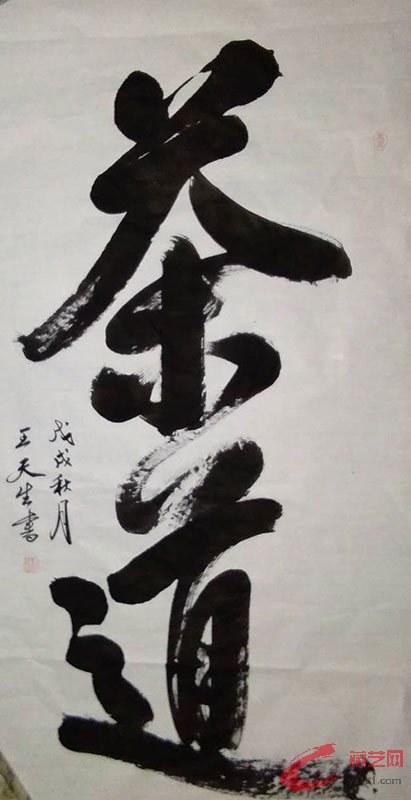 茶道
戊戌秋月
王天生書
藏艺网